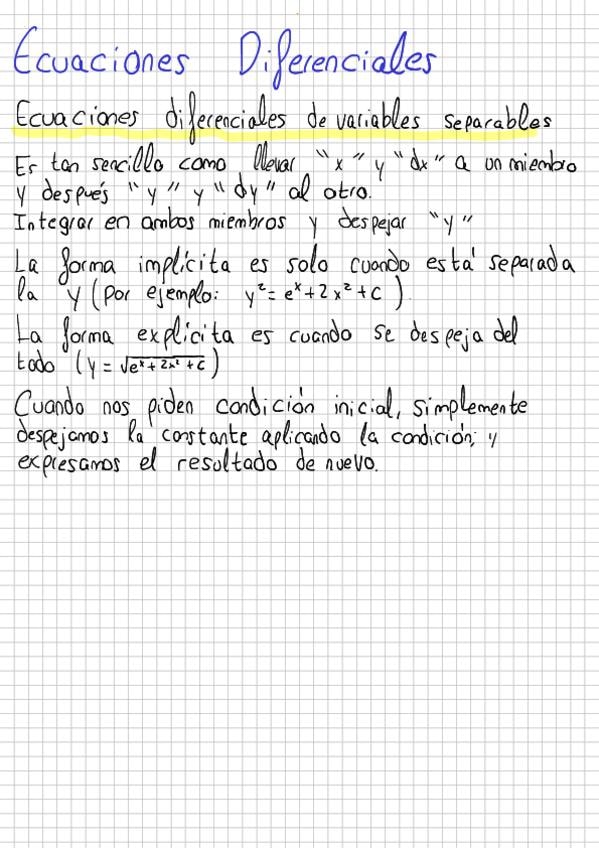 Ecuaciones Diferenciales
Ecuaciones diferenciales de variables separables
Es tan sencillo como llevar "x" y "dx" a un miembro
y después "y" y "dy" al otro.
Integrar en ambos miembros y despejar "y"
La forma implícita es solo cuando está separada
la y (por ejemplo: y² = eˣ + 2x² + c).
La forma explícita es cuando se despeja del
todo (y = √(eˣ + 2x² + c))
Cuando nos piden condición inicial, simplemente
despejamos la constante aplicando la condición, y
expresamos el resultado de nuevo.